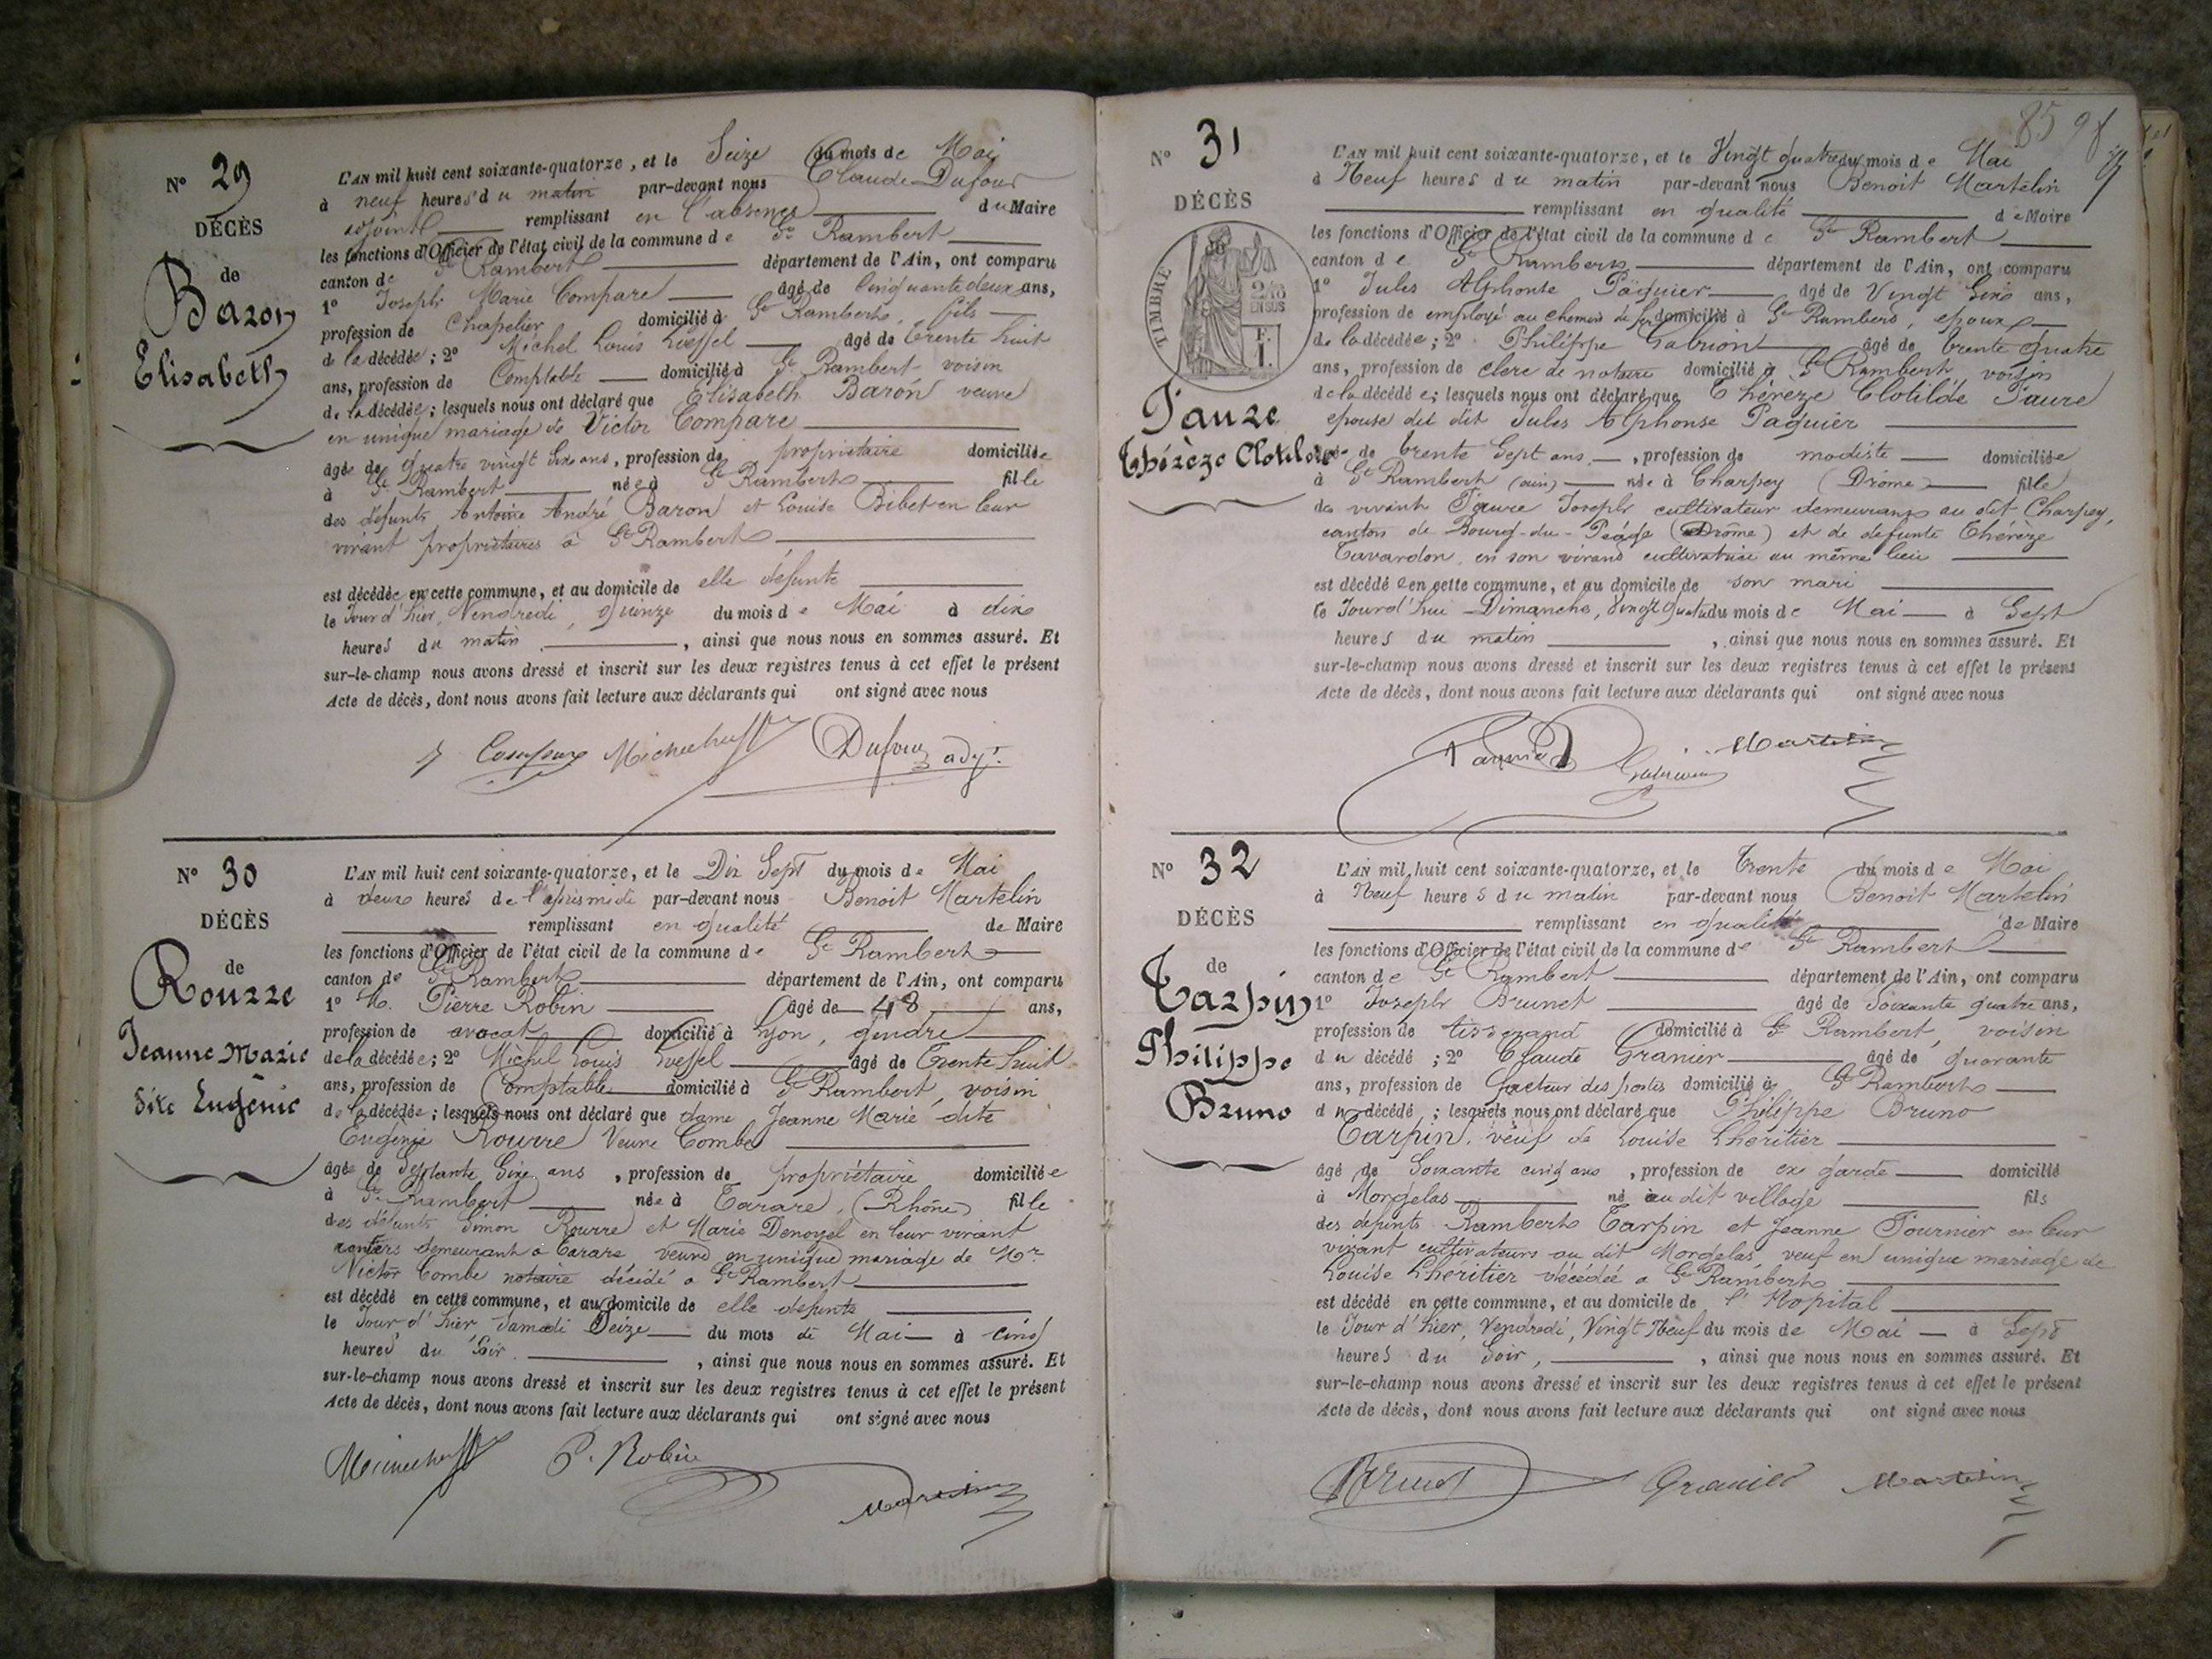 N° 29
DÉCÈS
de
Baron
Elisabeth
L'AN mil huit cent soixante-quatorze, et le Seize du mois de Mai
à neuf heures du matin par-devant nous Claude Dufour
adjoint remplissant en l'absence du Maire
les fonctions d'Officier de l'état civil de la commune de St Rambert
canton de St Rambert département de l'Ain, ont comparu
1° Joseph Marie Compare âgé de Cinquante deux ans,
profession de Chapelier domicilié à St Rambert, fils
de la décédée; 2° Michel Louis âgé de trente huit
ans, profession de Comptable domicilié à St Rambert voisin
de la décédée; lesquels nous ont déclaré que Elisabeth Baron veuve
en unique mariage de Victor Compare
âgée de quatre vingt Six ans, profession de propriétaire domiciliée
à St Rambert née à St Rambert fille
des défunts Antoine André Baron et Louise Bibet en leur
vivant propriétaires à St Rambert
est décédée en cette commune, et au domicile de elle défunte
le Jour d'hier, Vendredi, quinze du mois de Mai à dix
heures du matin, ainsi que nous nous en sommes assuré. Et
sur-le-champ nous avons dressé et inscrit sur les deux registres tenus à cet effet le présent
Acte de décès, dont nous avons fait lecture aux déclarants qui ont signé avec nous
Dufour adjt.
N° 30
DÉCÈS
de
Rourre
Jeanne Marie
dite Eugénie
L'AN mil huit cent soixante-quatorze, et le Dix Sept du mois de Mai
à deux heures de l'après midi par-devant nous Benoit Martelin
remplissant en qualité de Maire
les fonctions d'Officier de l'état civil de la commune de St Rambert
canton de St Rambert département de l'Ain, ont comparu
1° M. Pierre Robin âgé de 48 ans,
profession de avocat domicilié à Lyon, gendre
de la décédée; 2° Michel Louis âgé de Trente huit
ans, profession de Comptable domicilié à St Rambert, voisin
de la décédée; lesquels nous ont déclaré que dame Jeanne Marie dite
Eugénie Rourre Veuve Combe
âgée de Septante Six ans, profession de propriétaire domiciliée
à St Rambert née à Tarare, (Rhône) fille
des défunts Simon Rourre et Marie Denoyel en leur vivant
rentiers demeurant à Tarare veuve en unique mariage de Mr
Victor Combe notaire décédé à St Rambert
est décédé en cette commune, et au domicile de elle défunte
le Jour d'hier, Samedi Seize du mois de Mai à cinq
heures du Soir, ainsi que nous nous en sommes assuré. Et
sur-le-champ nous avons dressé et inscrit sur les deux registres tenus à cet effet le présent
Acte de décès, dont nous avons fait lecture aux déclarants qui ont signé avec nous
P. Robin
Martelin
85 98
N° 31
DÉCÈS
TIMBRE
2/10
EN SUS
F.
1.
Faure
Thérèze Clotilde
L'AN mil huit cent soixante-quatorze, et le Vingt quatre du mois de Mai
à Neuf heures du matin par-devant nous Benoit Martelin
remplissant en qualité de Maire
les fonctions d'Officier de l'état civil de la commune de St Rambert
canton de St Rambert département de l'Ain, ont comparu
1° Jules Alphonse Pâquier âgé de Vingt Six ans,
profession de employé au chemin de fer domicilié à St Rambert, epoux
de la décédée; 2° Philippe Gabrion âgé de trente quatre
ans, profession de clerc de notaire domicilié à St Rambert voisin
de la décédée; lesquels nous ont déclaré que Théreze Clotilde Faure
epouse du dit Jules Alphonse Paquier
âgée de trente Sept ans, profession de modiste domiciliée
à St Rambert (ain) née à Charpey (Drôme) fille
de vivant Faure Joseph cultivateur demeurant au dit Charpey,
canton de Bourg-du-Péage (Drôme) et de défunte Théreze
Tavardon, en son vivant cultivatrice au même lieu
est décédée en cette commune, et au domicile de son mari
le Jourd'hui Dimanche, Vingt quatre du mois de Mai à Sept
heures du matin, ainsi que nous nous en sommes assuré. Et
sur-le-champ nous avons dressé et inscrit sur les deux registres tenus à cet effet le présent
Acte de décès, dont nous avons fait lecture aux déclarants qui ont signé avec nous
Martelin
N° 32
DÉCÈS
de
Tarpin
Philippe
Bruno
L'AN mil huit cent soixante-quatorze, et le Trente du mois de Mai
à Neuf heures du matin par-devant nous Benoit Martelin
remplissant en qualité de Maire
les fonctions d'Officier de l'état civil de la commune de St Rambert
canton de St Rambert département de l'Ain, ont comparu
1° Joseph Brunet âgé de Soixante quatre ans,
profession de tisserand domicilié à St Rambert, voisin
du décédé; 2° Claude Granier âgé de quarante
ans, profession de facteur des postes domicilié à St Rambert
du décédé; lesquels nous ont déclaré que Philippe Bruno
Tarpin, veuf de Louise Lheritier
âgé de Soixante cinq ans, profession de ex garde domicilié
à Morgelas né au dit village fils
des défunts Rambert Tarpin et Jeanne Fournier en leur
vivant cultivateurs au dit Morgelas, veuf en unique mariage de
Louise Lhéritier décédée à St Rambert
est décédé en cette commune, et au domicile de l'Hopital
le Jour d'hier, Vendredi, Vingt Neuf du mois de Mai à Sept
heures du Soir, ainsi que nous nous en sommes assuré. Et
sur-le-champ nous avons dressé et inscrit sur les deux registres tenus à cet effet le présent
Acte de décès, dont nous avons fait lecture aux déclarants qui ont signé avec nous
Brunet Granier Martelin